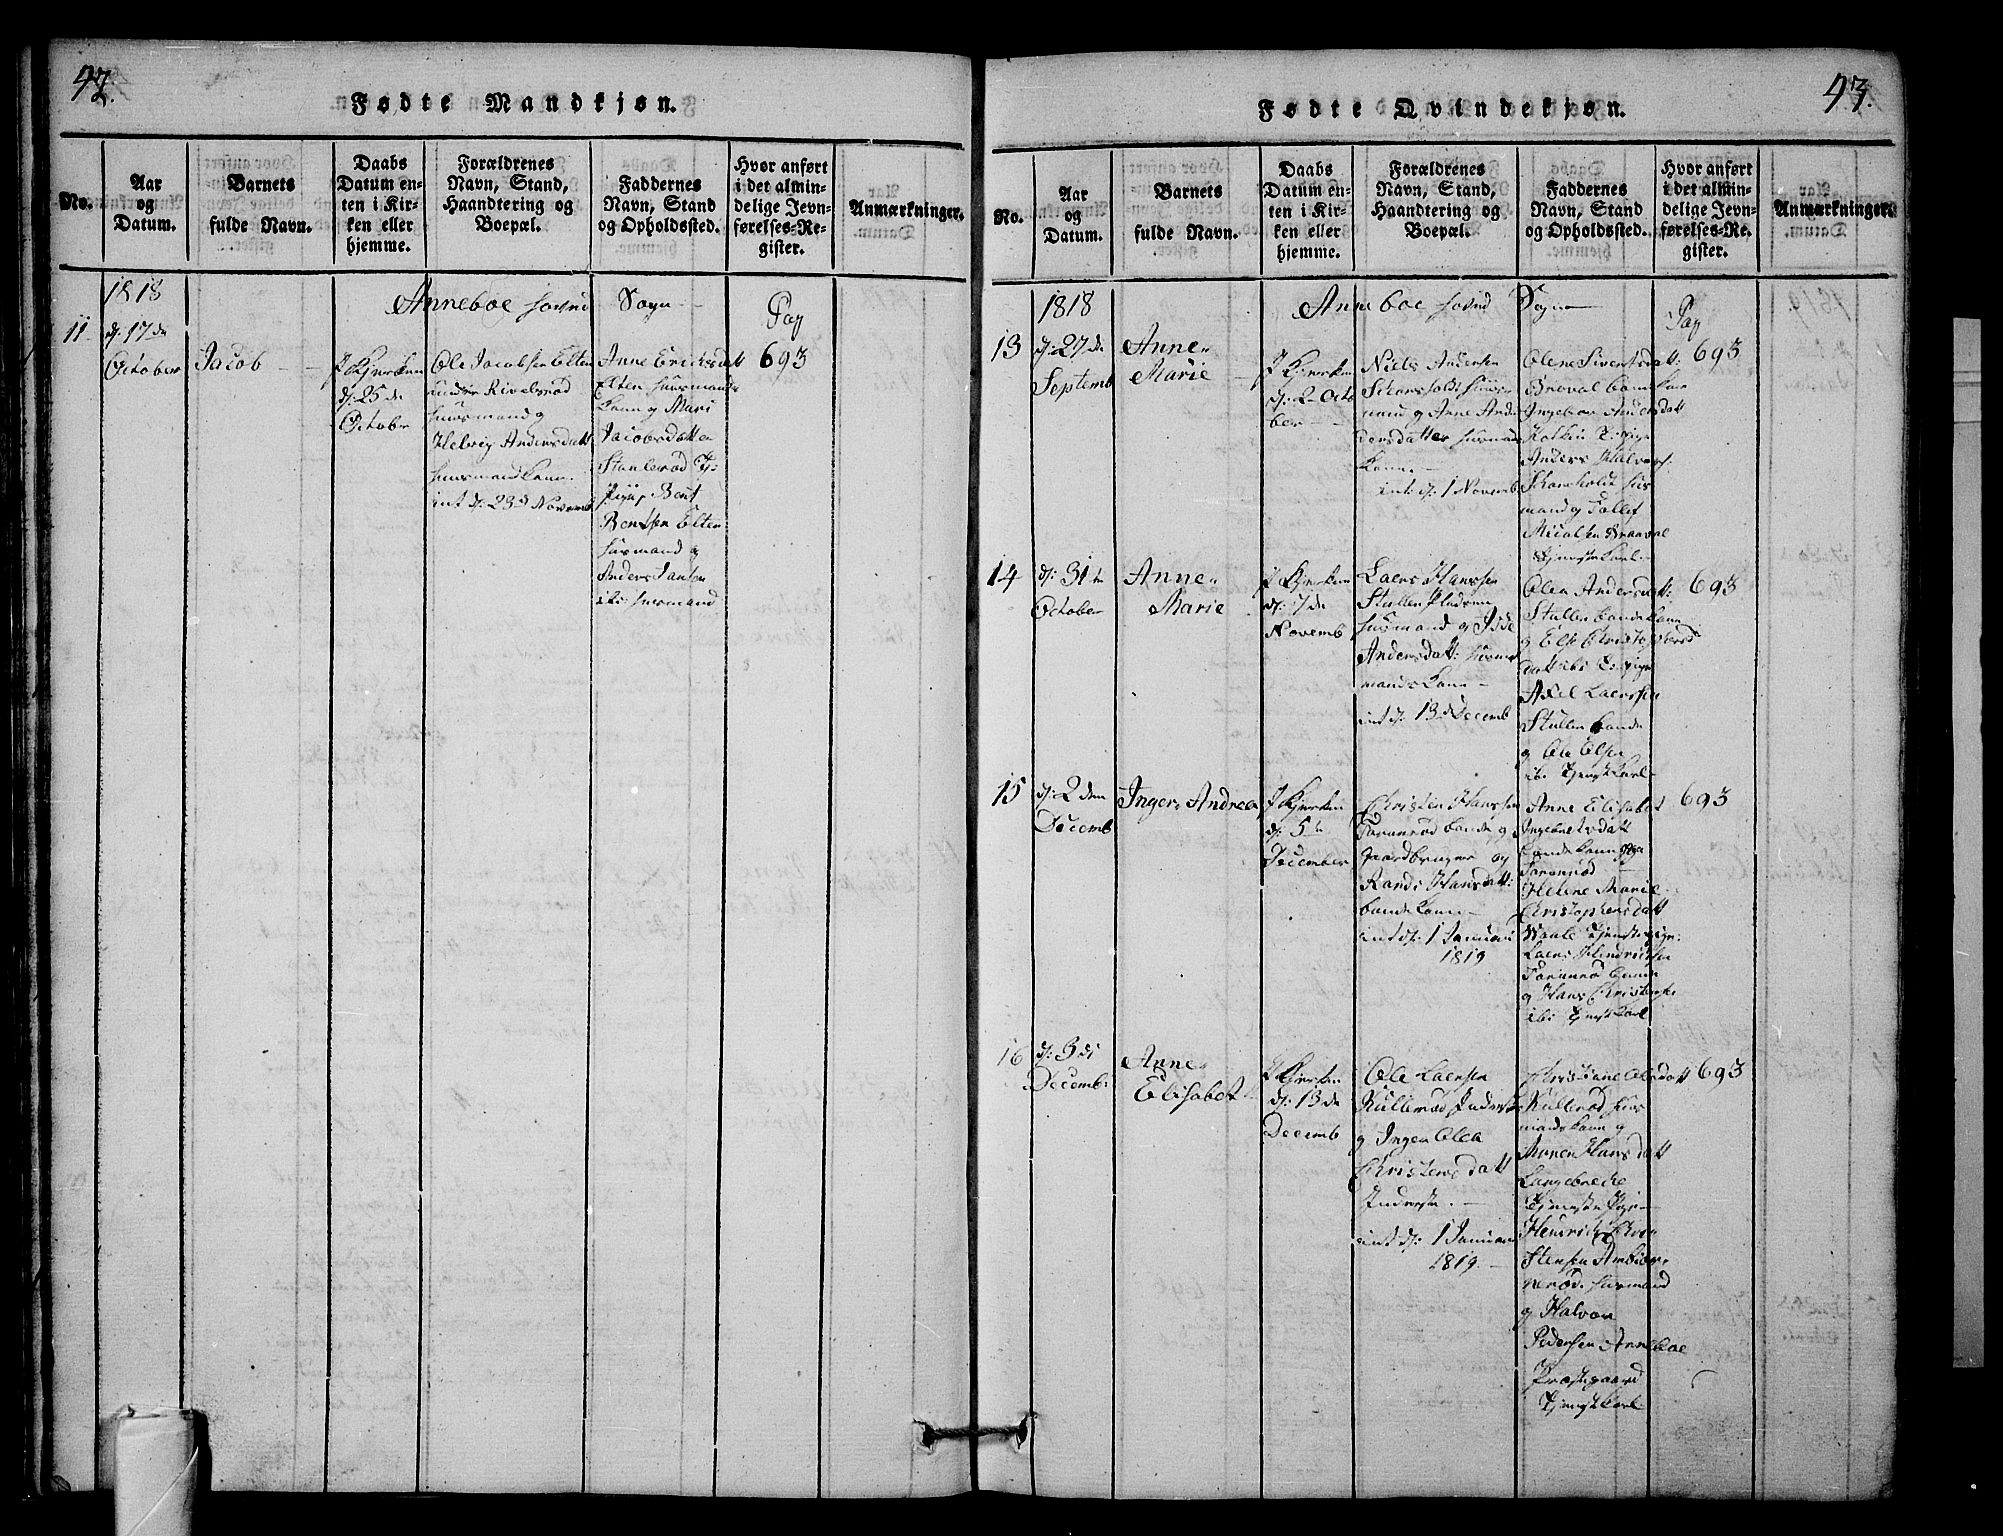 92.
Fødte Mandkjøn.
No.
Aar
og
Datum.
Barnets
fulde Navn.
Daabs
Datum en-
ten i Kir-
ken eller
hjemme.
Forældrenes
Navn, Stand,
Haandtering og
Boepæl.
Faddernes
Navn, Stand
og Opholdssted.
Hvor anført
i det almin-
delige Jevn-
førelses-Re-
gister.
Anmærkninger.
1818
Anneboe Sogn
Pag
11
d: 17de
October
Jacob
I Kjerken
d: 25de
October
Ole Jacobsen Elten
under Rivelsrød
huusmand og
Helvig Andersdatt
huusmandkone.
int d: 23d Novemb
Anne Ericksdatt
Elten huusmands
kone og Mari
Jacobsdatter
Stanlerød Tj:
Pige Bent
Bentsen Elten
huusmand og
Anders Jansen
ibi huusmand
693
93.
Fødte Qvindekjøn.
No.
Aar
og
Datum.
Barnets
fulde Navn.
Daabs
Datum en-
ten i Kir-
ken eller
hjemme.
Forældrenes
Navn, Stand,
Haandtering og
Boepæl.
Faddernes
Navn, Stand
og Opholdssted.
Hvor anført
i det almin-
delige Jevn-
førelses-Re-
gister.
Anmærkninger.
1818
Anneboe Sogn
Pag
13
d: 27de
Septemb
Anne
Marie
I Kjerken
d: 2 Octo
ber
Niels Andersen
huus-
mand og Anne An-
dersdatter huusmands
kone.
int: d: 1 Novemb
Olene Sivertsdatt:
Broval bondekone
Ingebor Andersdatt
Anders Halvors:
huus
mand og Tollef
Micalsen Braaval
Tjenestkarl.
693
14
d: 31te
October
Anne
Marie
I Kjerken
d: 7de
Novemb
Laers Hanssen
Stullen
huusmand og
Andersdatt: huus-
mandskone
int d: 13 Decemb
Olea Andersdatt:
Stullen bondekone
og Else Christophersd
datt ibi Tj: pige
Axel Laerssen
Stullen bonde
og Ole Olsen
ibi Tjenestkarl
693
15
d: 2den
Decemb
Inger Andrea
I Kjerken
d: 5te
December
Christen Hanssen
Foranrød bonde og
gaardbruger og
Randi Hansdatt:
bondekone
int d: 1 Januari
1819
Anne Elisabet
Ingebretsdatt
bondekone
Foranrød
Helene Marie
Christophersdatt
Waale Tjenestepige:
Laers Hendrichsen
Foranrød bonde
og Hans Christensen
ibi Tjenestkarl
693
16
d: 3di
Decemb:
Anne
Elisabet
I Kjerken
d: 13de
Decemb
Ole Laersen
Kullerød Inderst
og Inger Olea
Christensdatt
Inderste.
int d: 1 Januari
1819.
Christiane Olesdatt
Kullerød huus
mandskone og
Maren Hansdatt
Langebrecke
Tjeneste Pige
Hendrick Chri-
stensen Ambiør-
nerød huusmand
og Halvor
Pedersen Anneboe
Præstegaard
Tjenestkarl
693